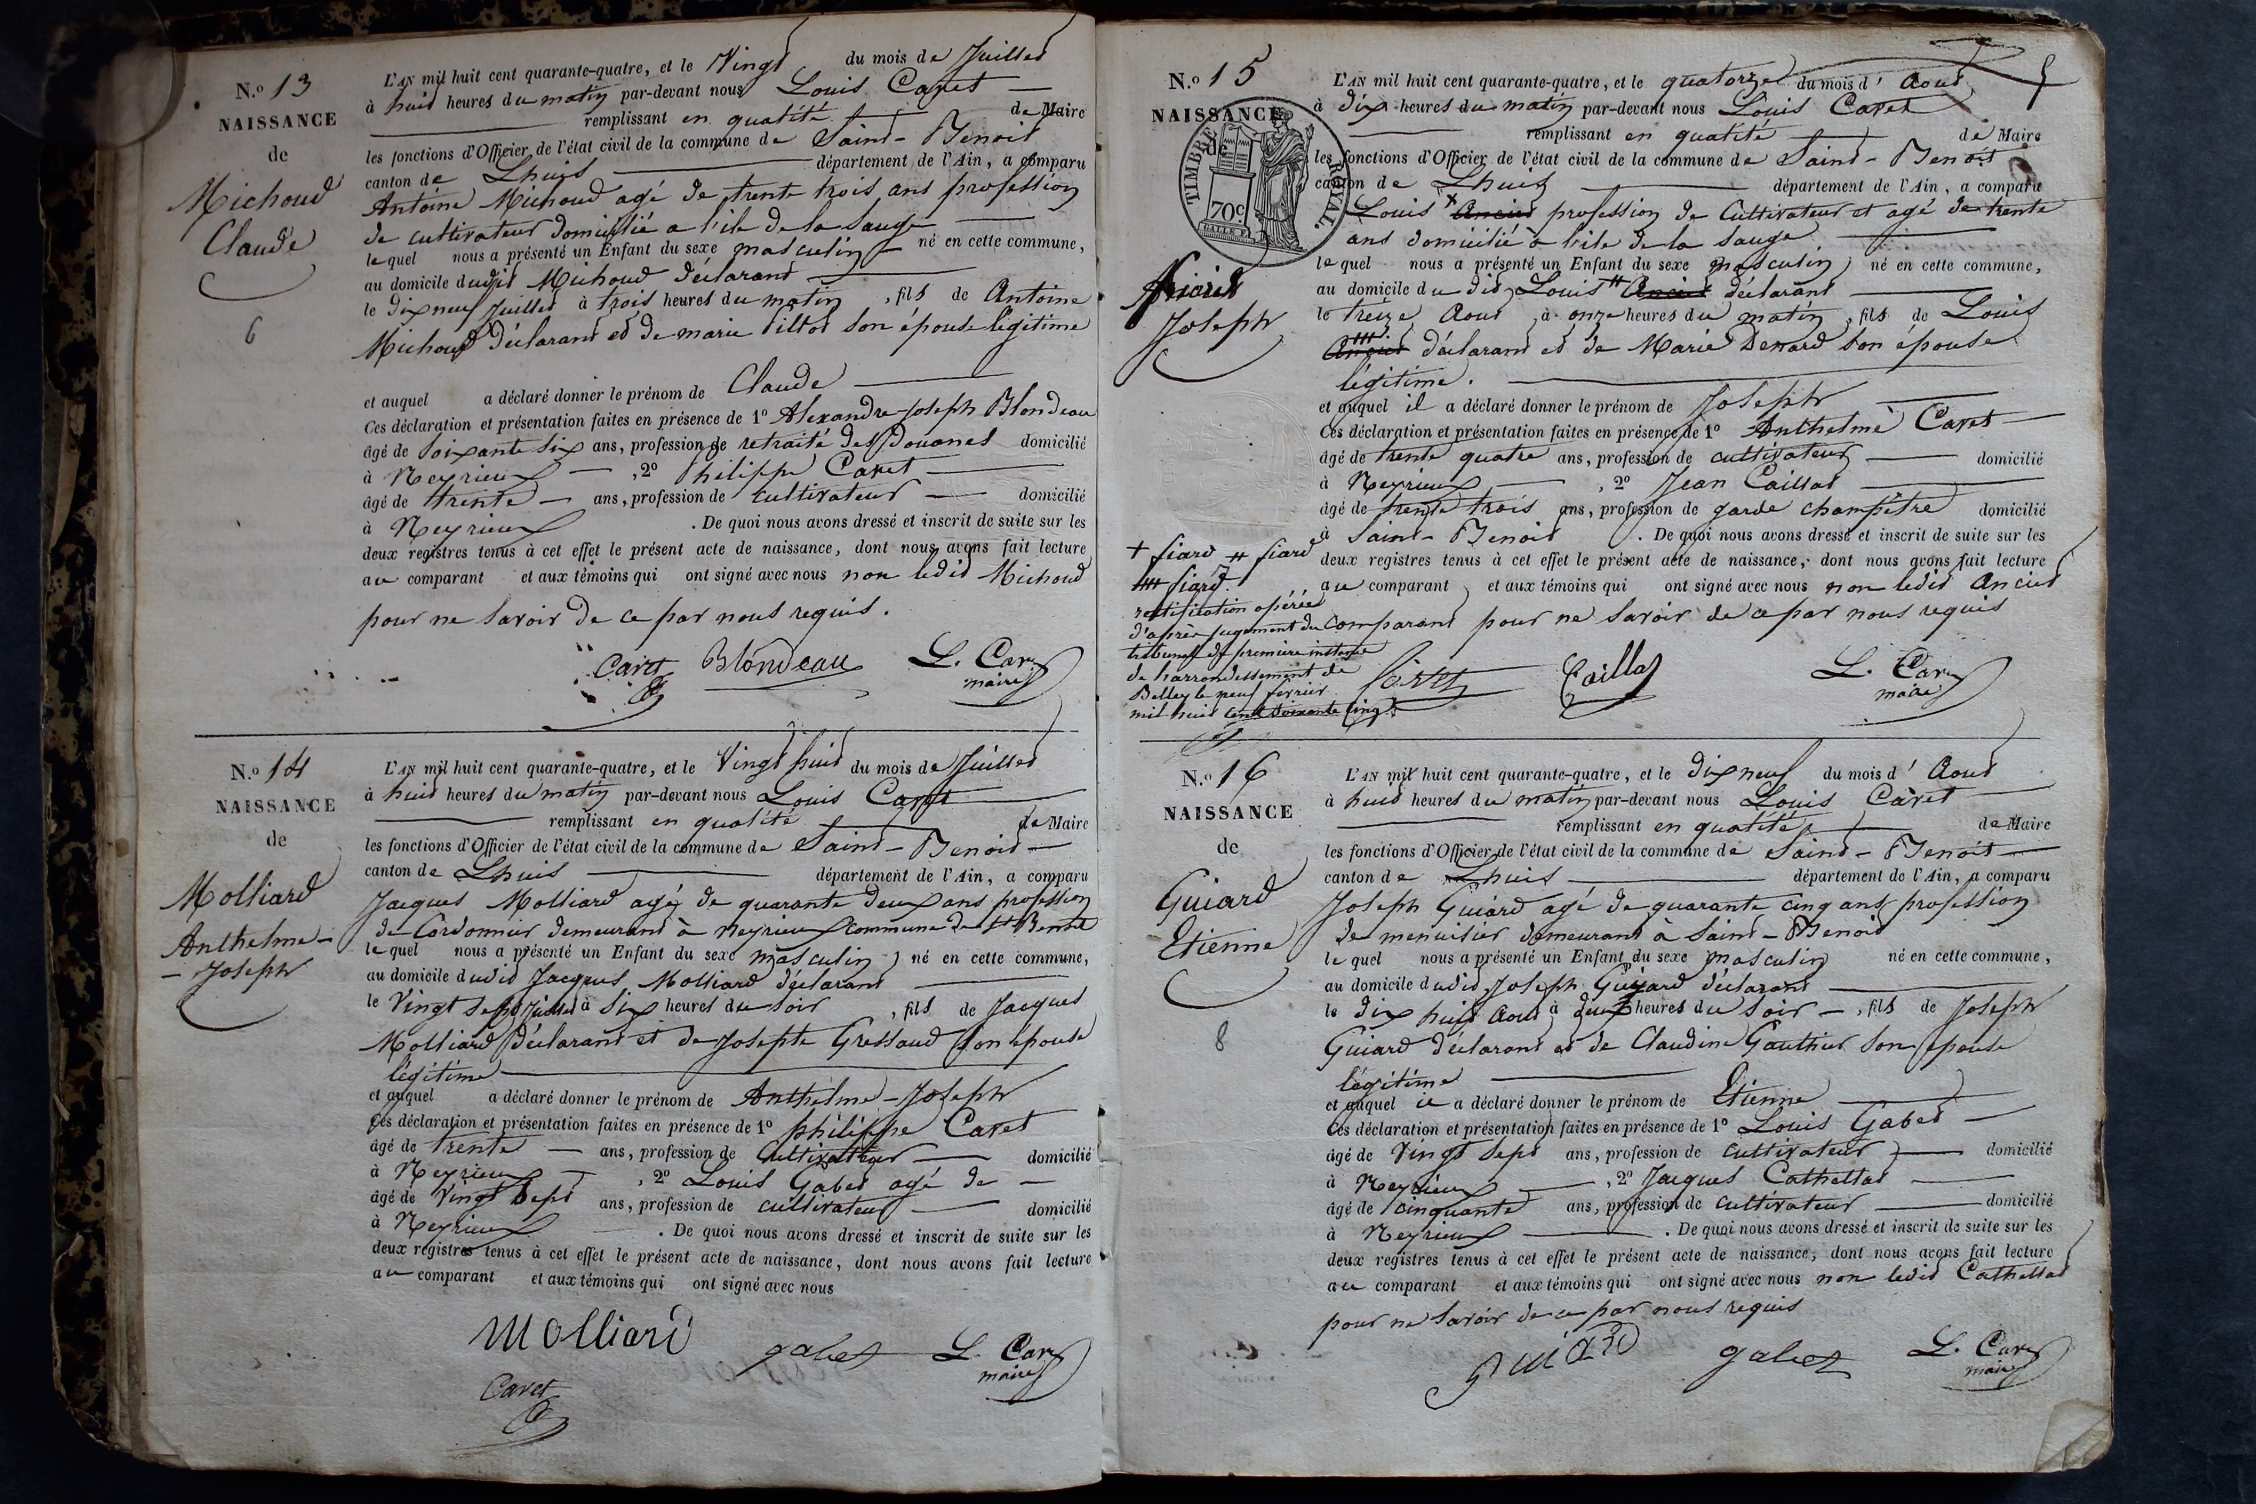 N.o 13
NAISSANCE
de
Michoud
Claude
6
L'AN mil huit cent quarante-quatre, et le Vingt du mois de Juillet
à huit heures du matin par-devant nous Louis Caret
remplissant en qualité de Maire
les fonctions d'Officier de l'état civil de la commune de Saint-Benoit
canton de Lhuis département de l'Ain, a comparu
Antoine Michoud agé de trente trois ans profession
de cultivateur domicilié a l'ile de la Sauge
lequel nous a présenté un Enfant du sexe masculin né en cette commune,
au domicile dudit Michoud déclarant
le dix neuf Juillet à trois heures du matin, fils de Antoine
Michoud déclarant et de marie Pillot son épouse légitime
et auquel a déclaré donner le prénom de Claude
Ces déclaration et présentation faites en présence de 1o Alexandre Joseph Blondeau
âgé de soixante six ans, profession de retraité des Douanes domicilié
à Neyrieux, 2o Philippe Caret
âgé de trente ans, profession de cultivateur domicilié
à Neyrieux. De quoi nous avons dressé et inscrit de suite sur les
deux registres tenus à cet effet le présent acte de naissance, dont nous avons fait lecture
au comparant et aux témoins qui ont signé avec nous non ledit Michoud
pour ne savoir de ce par nous requis.
Caret Blondeau L. Caret
maire
N.o 14
NAISSANCE
de
Molliard
Anthelme-
-Joseph
L'AN mil huit cent quarante-quatre, et le Vingt huit du mois de Juillet
à huit heures du matin par-devant nous Louis Caret
remplissant en qualité de Maire
les fonctions d'Officier de l'état civil de la commune de Saint-Benoit
canton de Lhuis département de l'Ain, a comparu
Jacques Molliard agé de quarante deux ans profession
de Cordonnier demeurant à neyrieux commune de St Benoit
lequel nous a présenté un Enfant du sexe masculin né en cette commune,
au domicile dudit Jacques Molliard déclarant
le Vingt sept Juillet à six heures du soir, fils de Jacques
Molliard déclarant et de Josephte Gressaud son épouse
légitime
et auquel a déclaré donner le prénom de Anthelme-Joseph
Ces déclaration et présentation faites en présence de 1o philippe Caret
âgé de trente ans, profession de Cultivateur domicilié
à Neyrieux, 2o Louis Gabet agé de
âgé de Vingt sept ans, profession de cultivateur domicilié
à Neyrieux. De quoi nous avons dressé et inscrit de suite sur les
deux registres tenus à cet effet le présent acte de naissance, dont nous avons fait lecture
au comparant et aux témoins qui ont signé avec nous
Molliard gabet L. Caret
maire
Caret
N.o 15
NAISSANCE
de
TIMBRE ROYAL.
70c
Joseph
L'AN mil huit cent quarante-quatre, et le quatorze du mois d' Aout
à dix heures du matin par-devant nous Louis Caret
remplissant en qualité de Maire
les fonctions d'Officier de l'état civil de la commune de Saint-Benoit
canton de Lhuis département de l'Ain, a comparu
Louis Anciet profession de Cultivateur et agé de trente
ans domicilié à l'ile de la Sauge
lequel nous a présenté un Enfant du sexe masculin né en cette commune,
au domicile du dit Louis Anciet déclarant
le treize Aout à onze heures du matin, fils de Louis
Anciet déclarant et de Marie Denard son épouse
légitime.
et auquel il a déclaré donner le prénom de Joseph
Ces déclaration et présentation faites en présence de 1o Anthelme Caret
âgé de trente quatre ans, profession de cultivateur domicilié
à Neyrieux, 2o Jean Caillat
âgé de trente trois ans, profession de garde champêtre domicilié
à Saint-Benoit. De quoi nous avons dressé et inscrit de suite sur les
deux registres tenus à cet effet le présent acte de naissance, dont nous avons fait lecture
au comparant et aux témoins qui ont signé avec nous non ledit Anciet
Comparant pour ne savoir de ce par nous requis
+ fiard # fiard
fiard.
rectification opérée
d'après jugement du
tribunal de première instance
de l'arrondissement de
Belley le neuf fevrier
mil huit cent soixante cinq.
Caret Caillat L. Caret
maire
N.o 16
NAISSANCE
de
Guiard
Etienne
8
L'AN mil huit cent quarante-quatre, et le dix neuf du mois d' Aout
à huit heures du matin par-devant nous Louis Caret
remplissant en qualité de Maire
les fonctions d'Officier de l'état civil de la commune de Saint-Benoit
canton de Lhuis département de l'Ain, a comparu
Joseph Guiard agé de quarante cinq ans profession
de menuisier demeurant à Saint-Benoit
lequel nous a présenté un Enfant du sexe masculin né en cette commune,
au domicile dudit Joseph Guiard déclarant
le dix huit Aout à deux heures du soir, fils de Joseph
Guiard déclarant et de Claudine Gauthier son épouse
légitime
et auquel il a déclaré donner le prénom de Etienne
Ces déclaration et présentation faites en présence de 1o Louis Gabet
âgé de Vingt sept ans, profession de cultivateur domicilié
à Neyrieux, 2o Jacques Cathellat
âgé de cinquante ans, profession de cultivateur domicilié
à Neyrieux. De quoi nous avons dressé et inscrit de suite sur les
deux registres tenus à cet effet le présent acte de naissance, dont nous avons fait lecture
au comparant et aux témoins qui ont signé avec nous non ledit Cathellat
pour ne savoir de ce par nous requis
guiard gabet L. Caret
maire